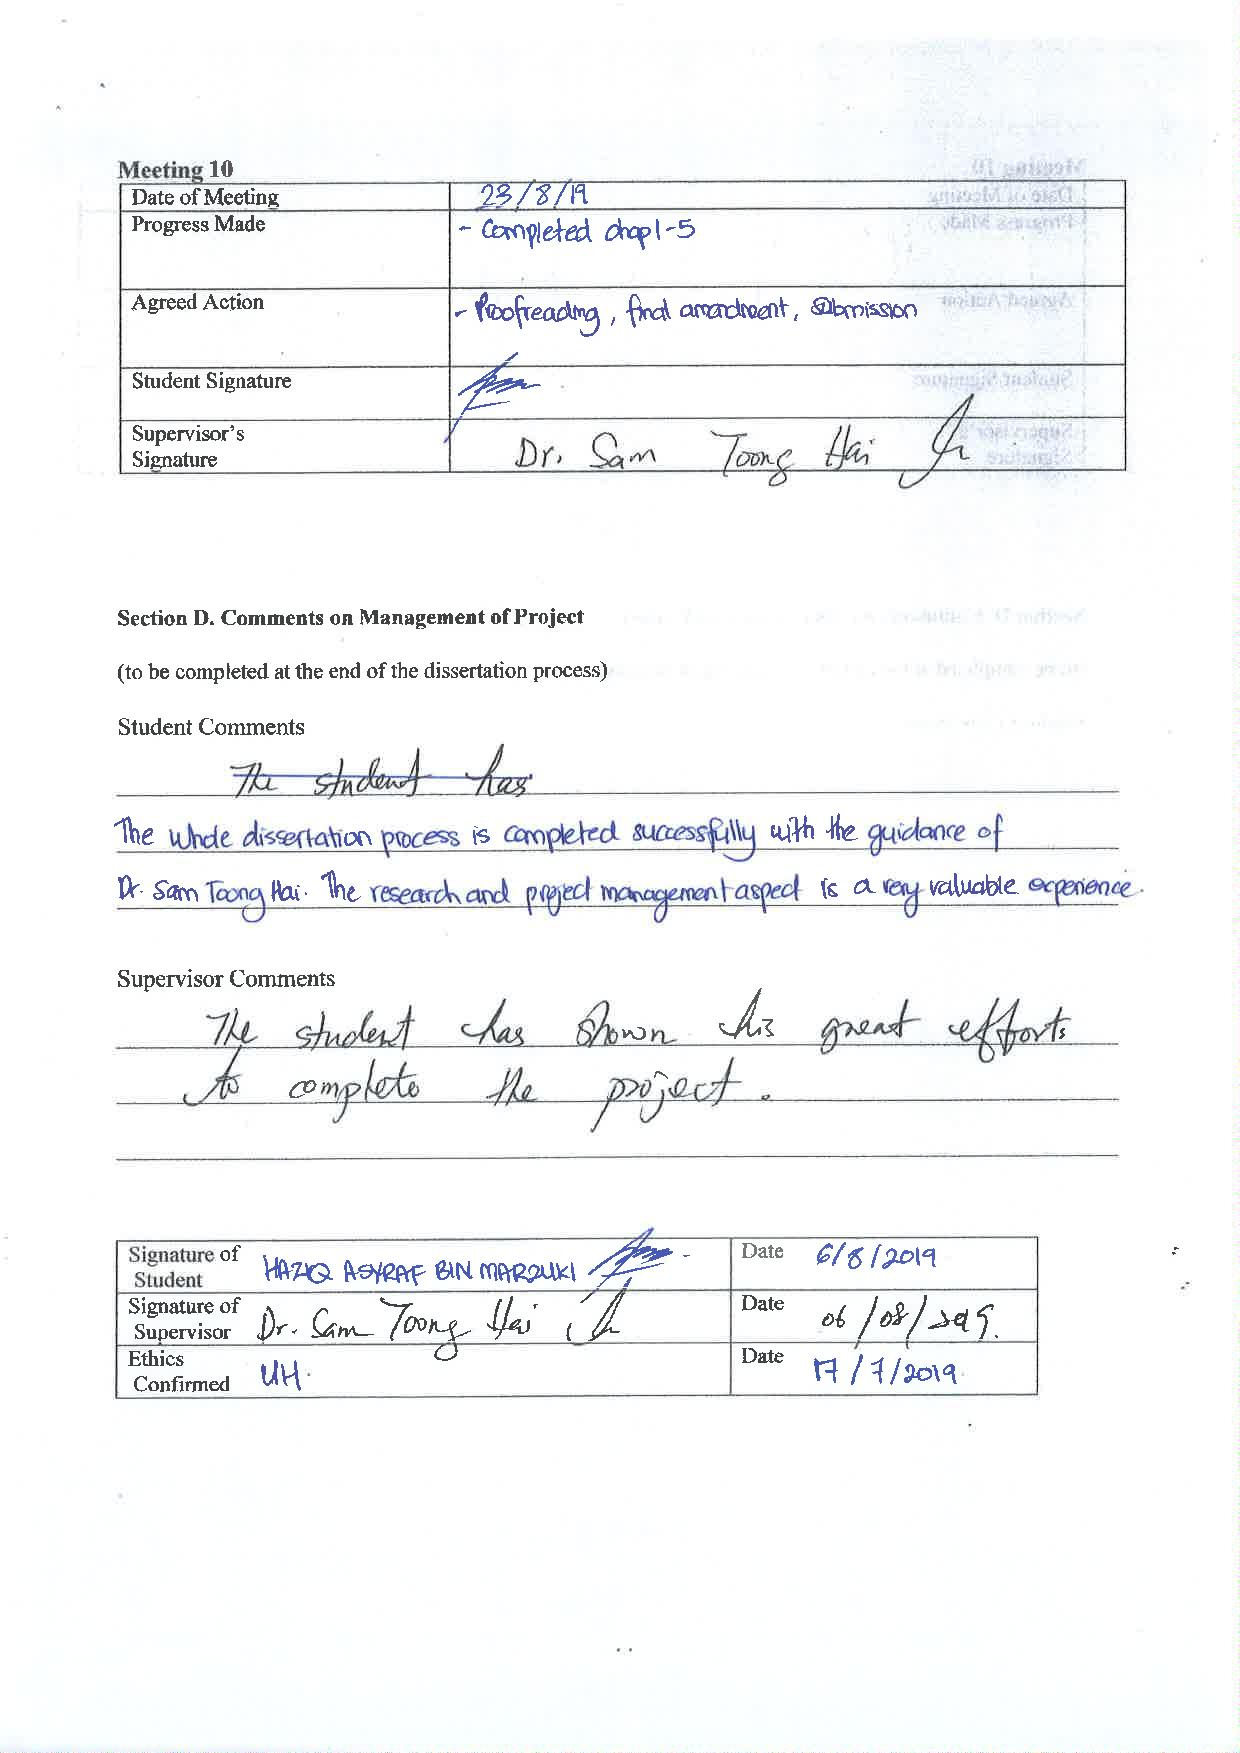 Meeting 10
Date of Meeting 23/8/19
Progress Made - Completed chap 1-5
Agreed Action - Proofreading, final amendment, submission
Student Signature
Supervisor's
Signature Dr. Sam Toong Hai
Section D. Comments on Management of Project
(to be completed at the end of the dissertation process)
Student Comments
The student has
The whole dissertation process is completed successfully with the guidance of
Dr. Sam Toong Hai. The research and project management aspect is a very valuable experience.
Supervisor Comments
The student has shown his great efforts
to complete the project.
Signature of
Student HAZIQ ASYRAF BIN MARZUKI Date 6/8/2019
Signature of
Supervisor Dr. Sam Toong Hai Date 06/08/2019.
Ethics
Confirmed UH. Date 17/7/2019.